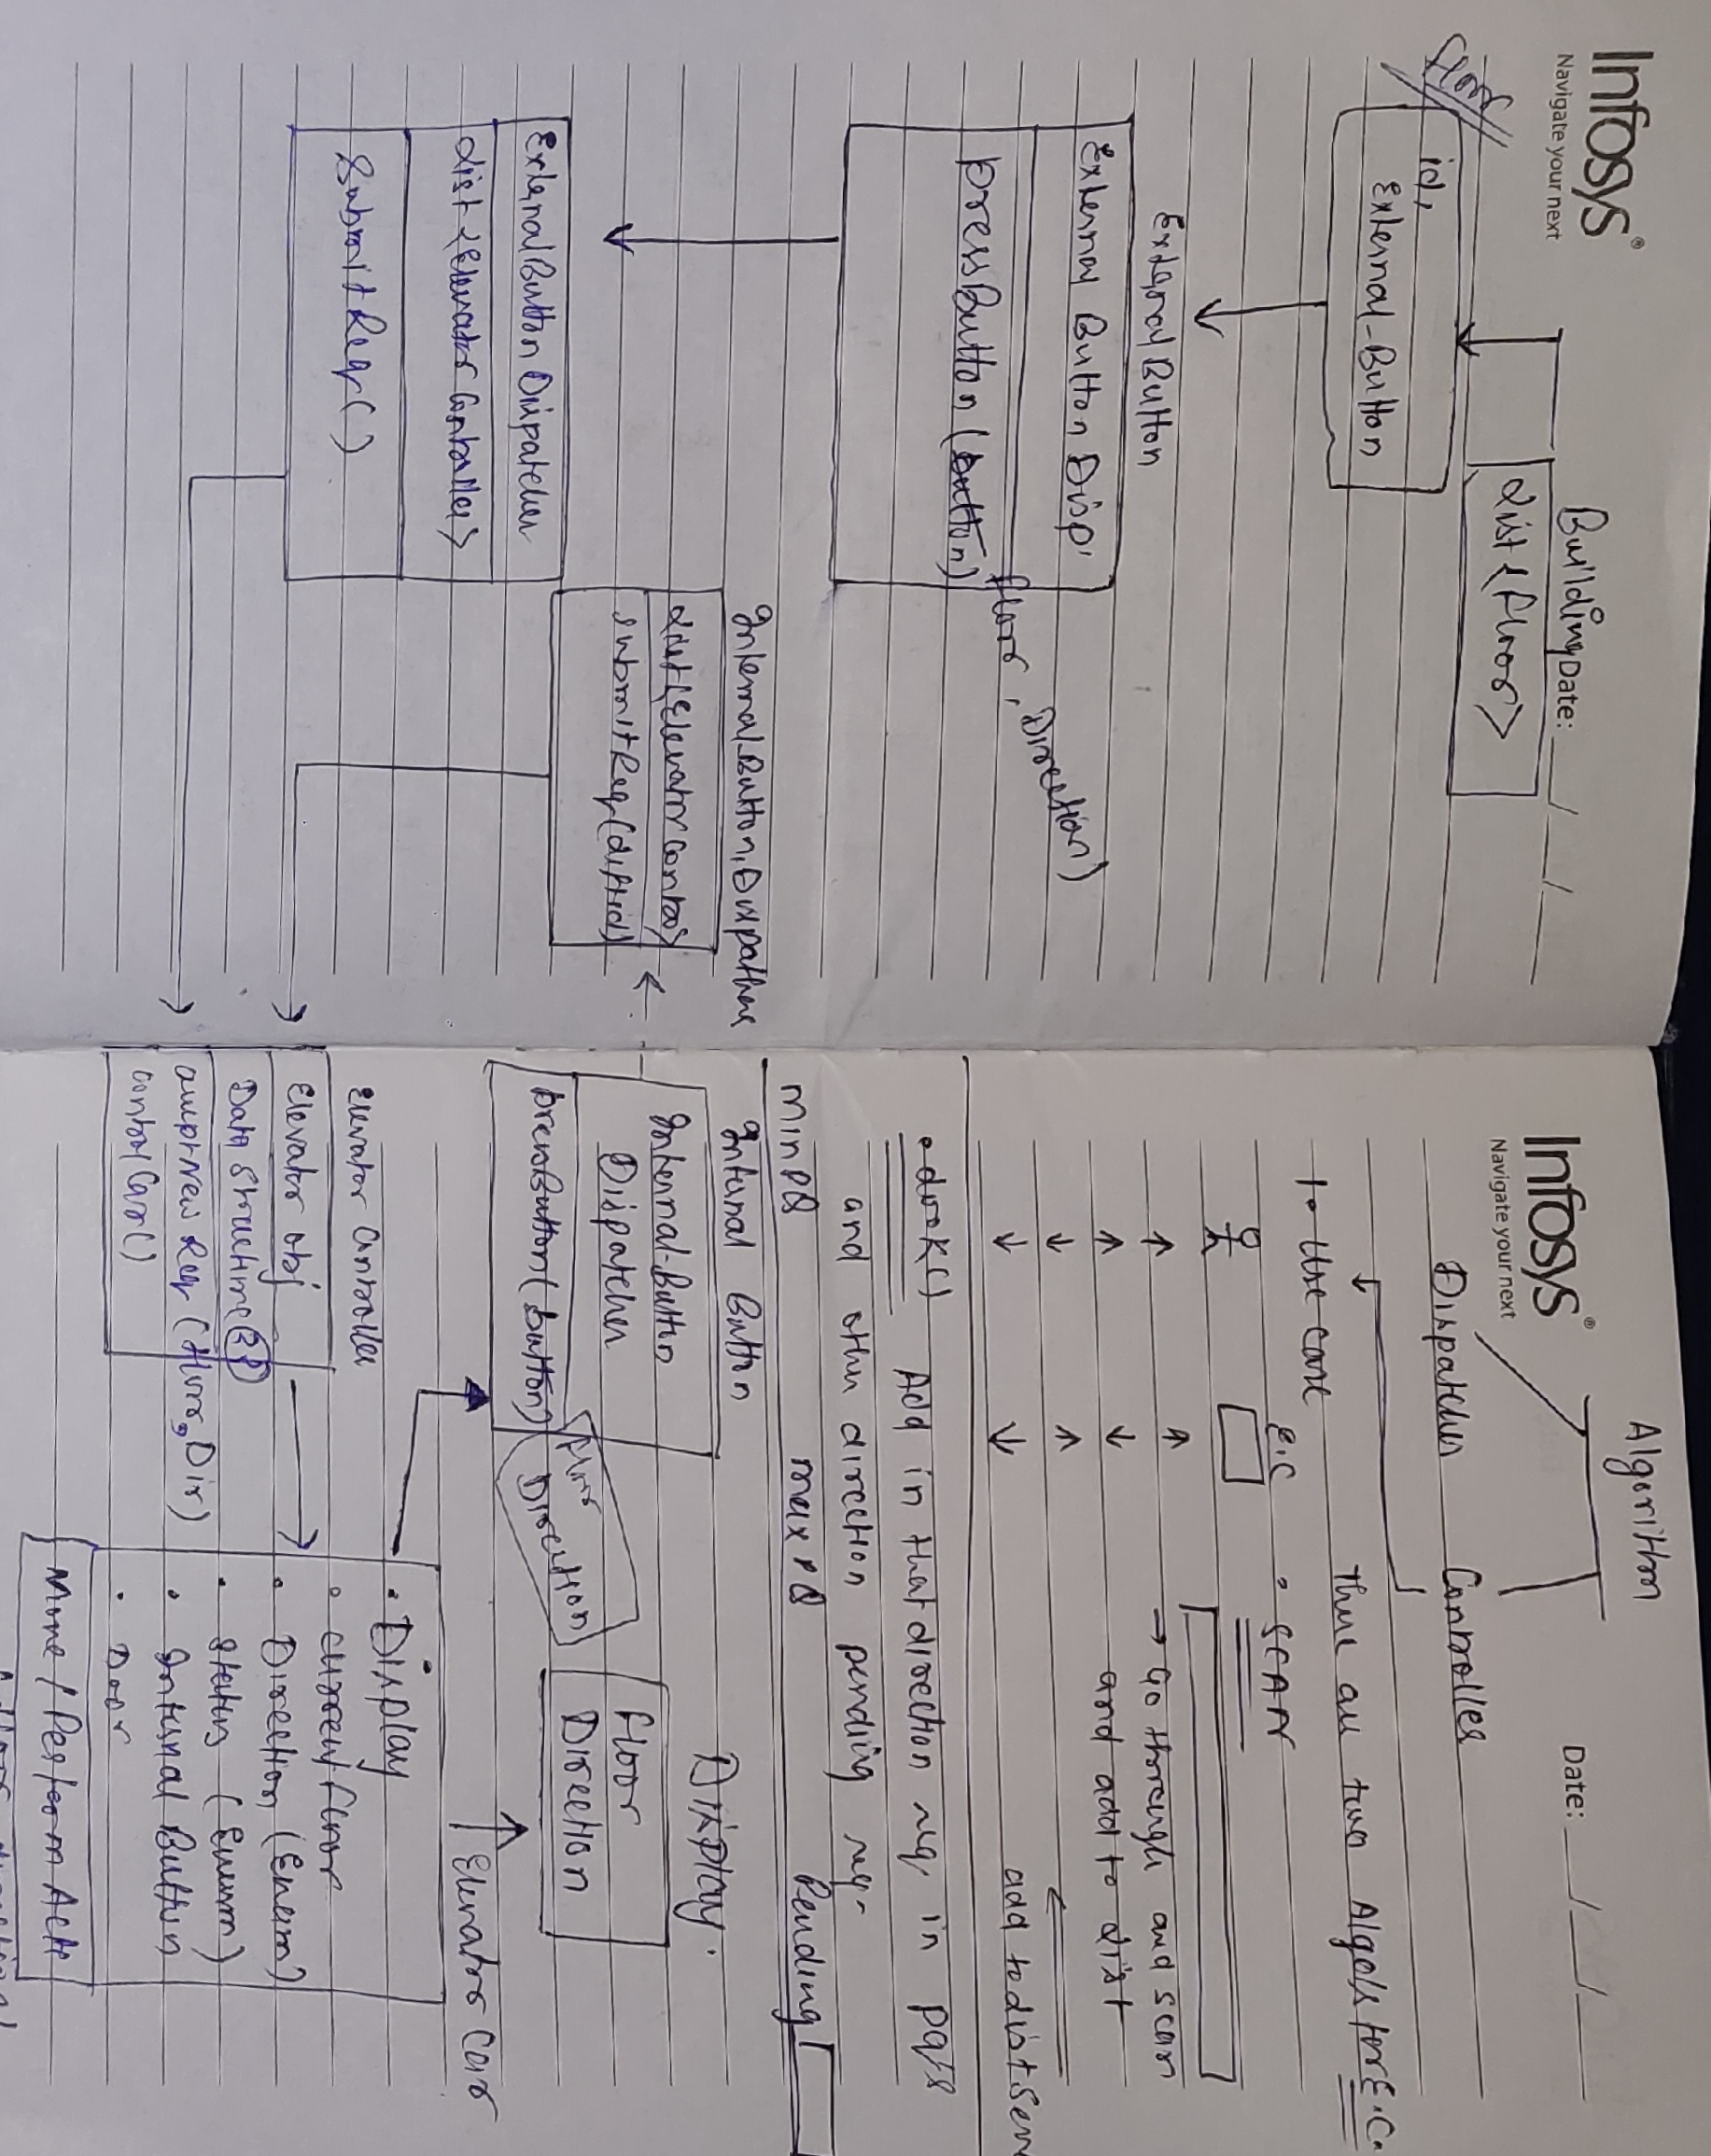 Infosys®
Navigate your next
Date: __/__/__
Building
List <Floor>
Floor
id,
External-Button
External Button
External Button Disp'
pressButton (button)
floor, Direction)
Internal Button Dispatcher
List<Elevator Contro>
submitReq(liftid)
External Button Dispatcher
List <Elevator Controller>
Submit Req()
Infosys®
Navigate your next
Algorithm
Date: __/__/__
Dispatcher Controller
There are two Algo's for E.C.
to use case
E.C
• SCAN
→ Go through and scan
and add to list
add to list
• Look() Add in that direction req. in pq's
and other direction pending req.
MinPQ max PQ Pending
Internal Button
Internal-Button
Dispatcher
pressButton(button)
Floor
Direction
Display.
Floor
Direction
Elevator Car
• Display
• current floor
• Direction (Enum)
• Status (Enum)
• Internal Button
• Door
Move/
Elevator Controller
Elevator obj
Data Structure
accept New Req (floor, Dir)
control Car()